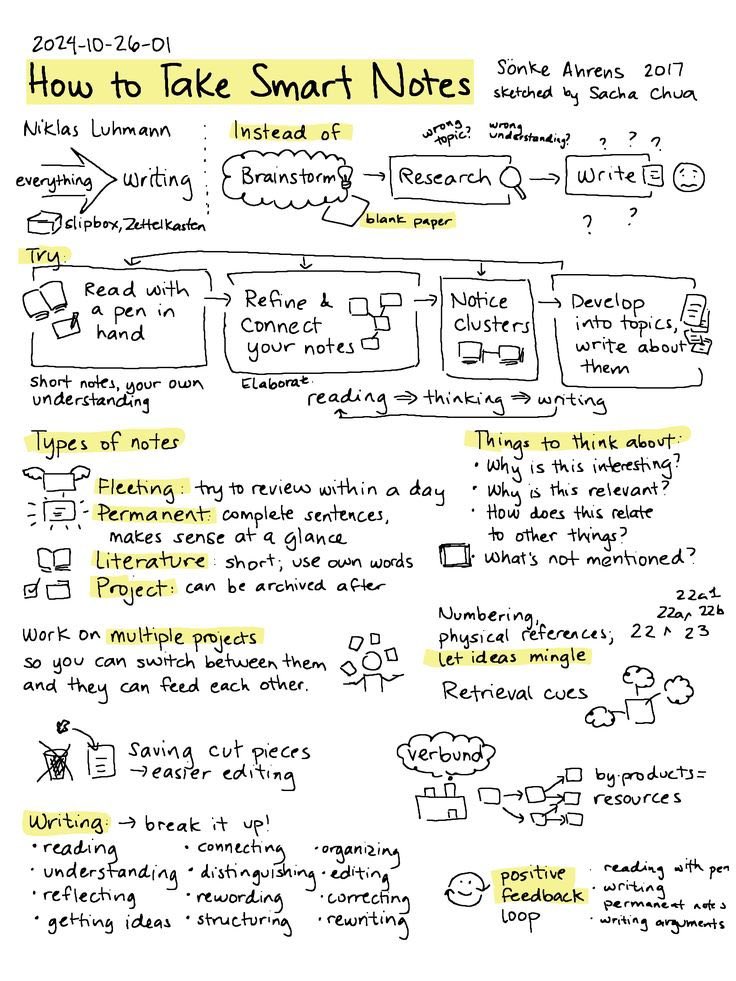 2024-10-26-01
How to Take Smart Notes
Sönke Ahrens 2017
sketched by Sacha Chua
Niklas Luhmann
everything
writing
slipbox, Zettelkasten
Instead of
Brainstorm
blank paper
wrong
topic?
Research
wrong
understanding?
Write
? ? ?
? ?
Try:
Read with
a pen in
hand
short notes, your own
understanding
Refine &
connect
your notes
Elaborat.
Notice
clusters
Develop
into topics,
write about
them
reading ⇒ thinking ⇒ writing
Types of notes
Fleeting: try to review within a day
Permanent: complete sentences,
makes sense at a glance
Literature: short; use own words
Project: can be archived after
Things to think about:
• Why is this interesting?
• Why is this relevant?
• How does this relate
to other things?
• What's not mentioned?
Work on multiple projects
so you can switch between them
and they can feed each other.
Numbering,
physical references;
let ideas mingle
22a1
22a, 22b
22 ^ 23
Retrieval cues
Saving cut pieces
→ easier editing
verbund
by-products =
resources
Writing: → break it up!
• reading
• understanding
• reflecting
• getting ideas
• connecting
• distinguishing
• rewording
• structuring
• organizing
• editing
• correcting
• rewriting
positive
feedback
loop
• reading with pen
• writing
permanent notes
• writing arguments